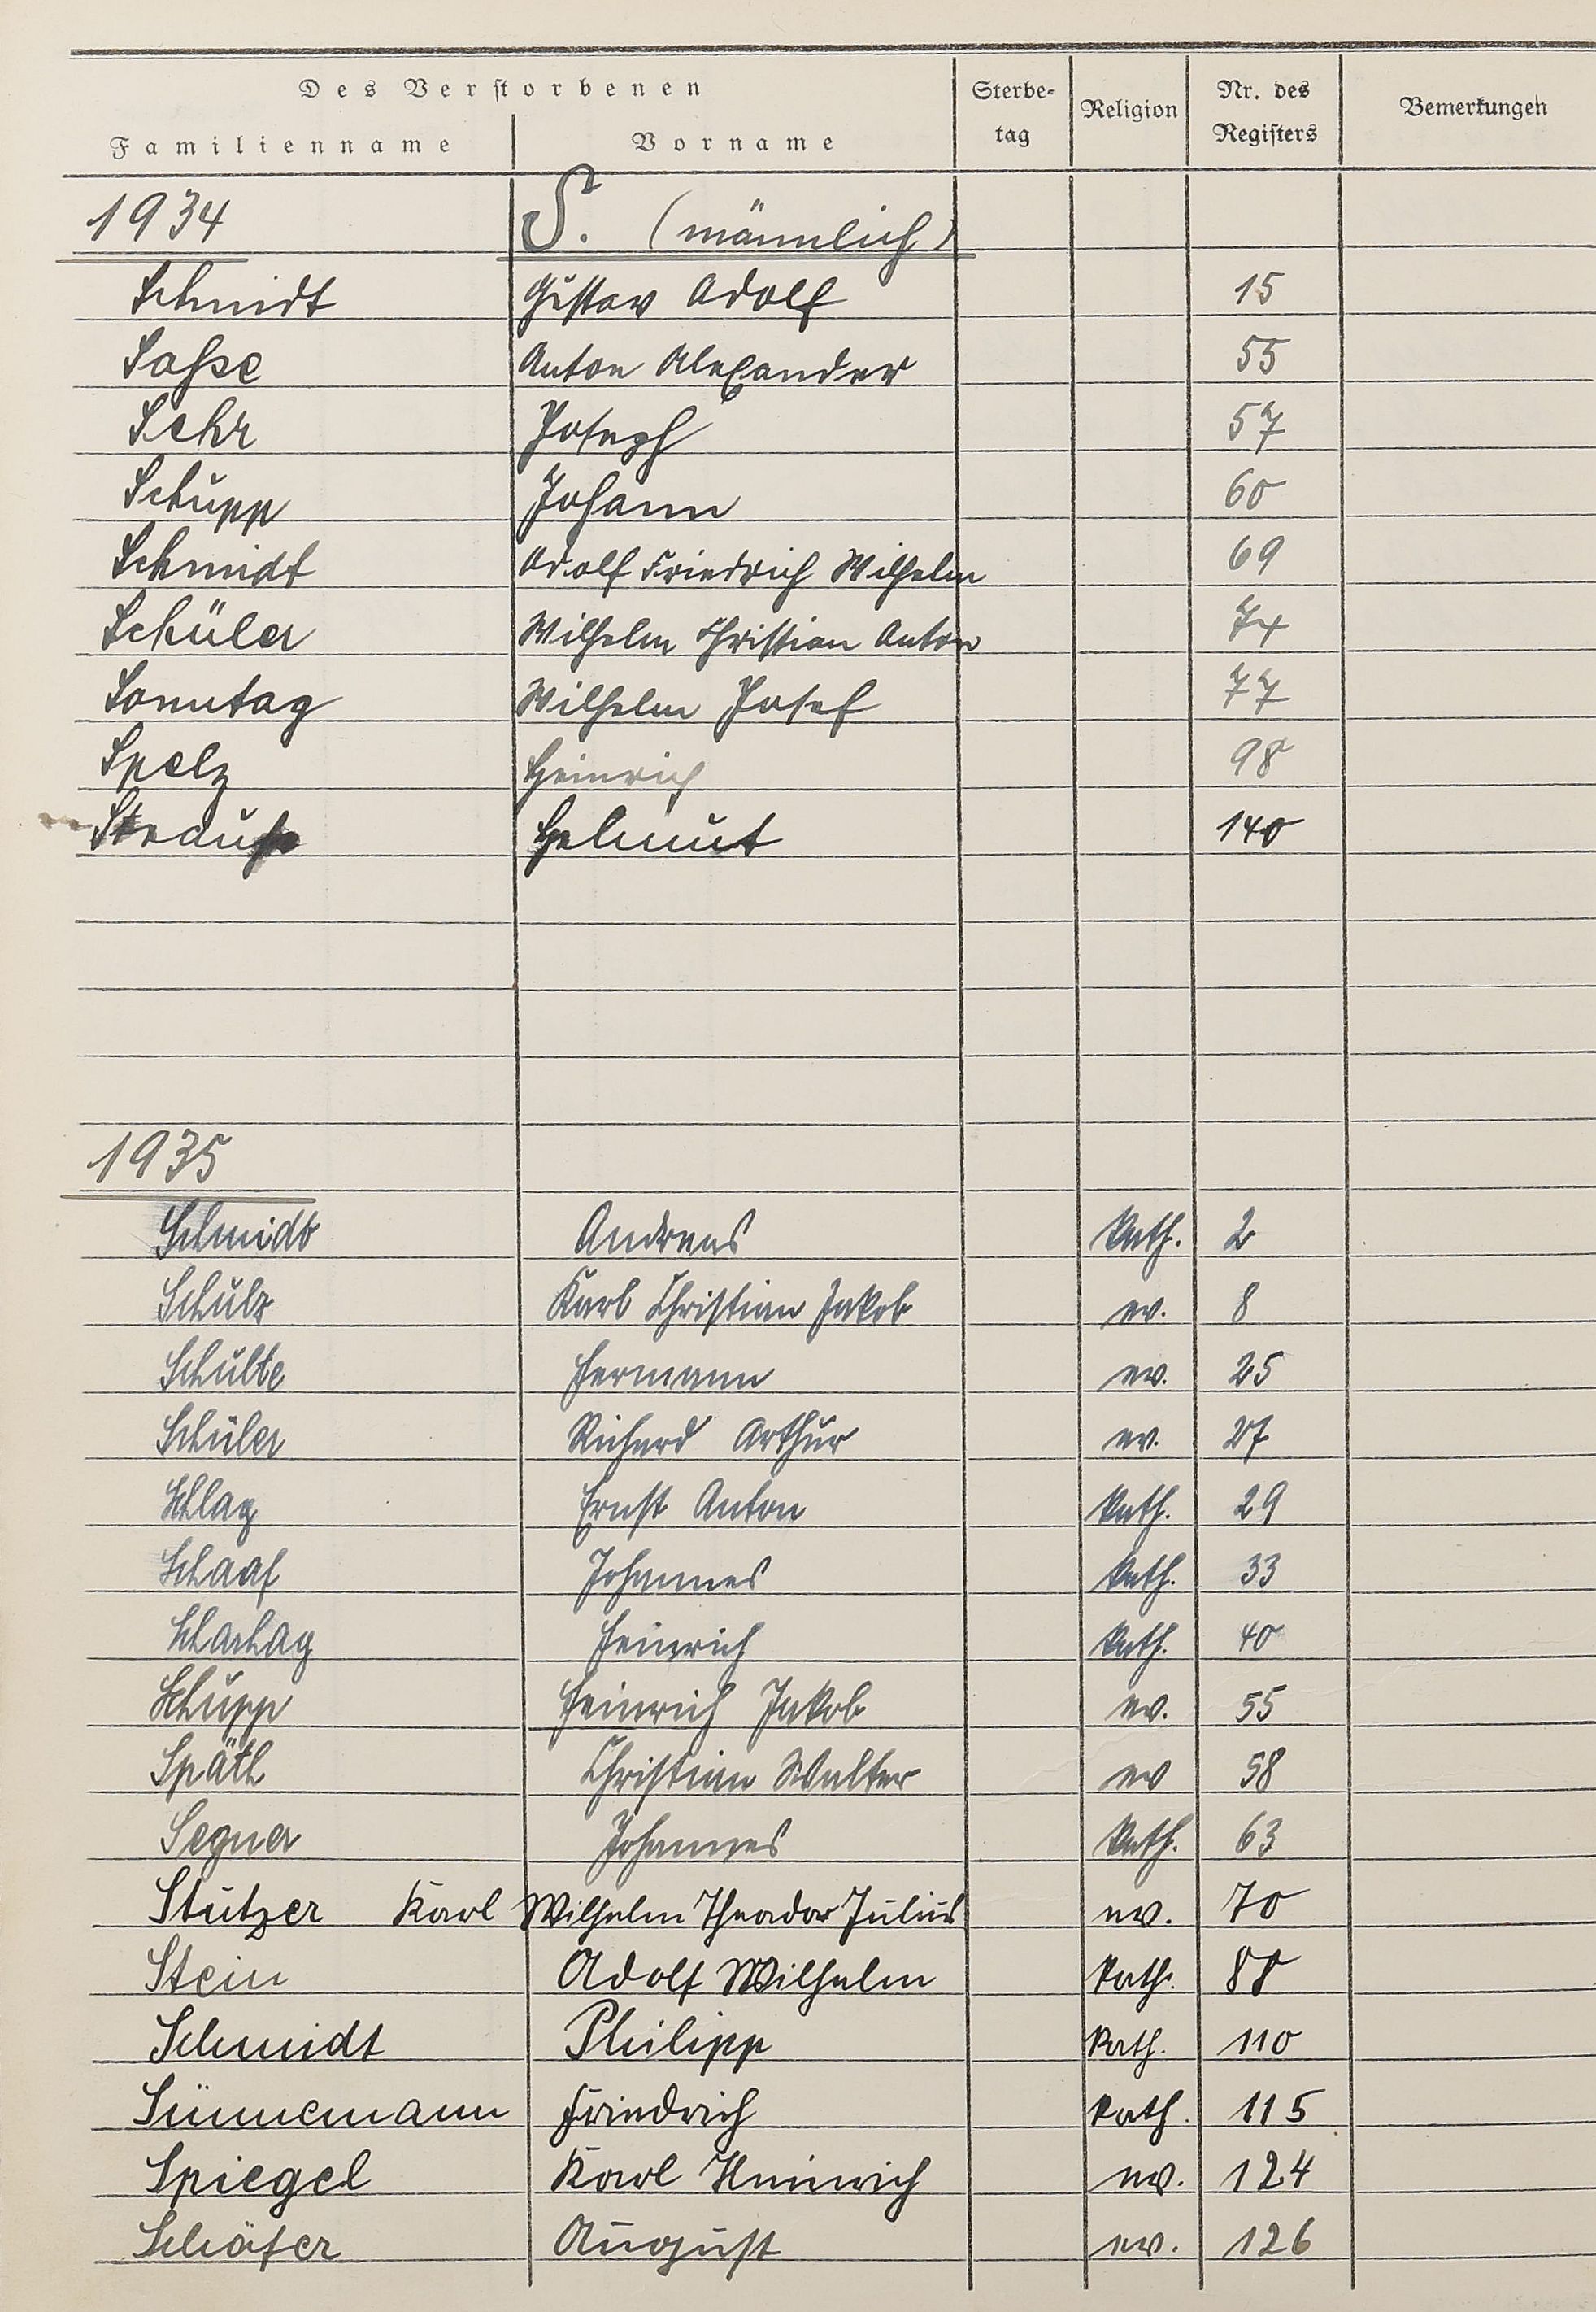 Des Verstorbenen
Familienname Vorname Sterbetag Religion Nr. des Registers Bemerkungen
1934 S. (männlich)
Schmidt Gustav Adolf 15
Saßse Anton Alexander 55
Sehr Joseph 57
Schupp Johann 60
Schmidt Adolf Friedrich Wilhelm 69
Schüler Wilhelm Christian Anton 74
Sonntag Wilhelm Josef 77
Spelz Heinrich 98
Strauß Helmut 140
1935
Schmidt Andreas kath. 2
Schulz Karl Christian Jakob ev. 8
Schulte Hermann ev. 25
Schüler Richard Arthur ev. 27
Schlag Ernst Anton kath. 29
Schaaf Johannes kath. 33
Scharhag Heinrich kath. 40
Schupp Heinrich Jakob ev. 55
Späth Christian Walter ev 58
Segner Johannes kath. 63
Stutzer Karl Wilhelm Theodor Julius ev. 70
Stein Adolf Wilhelm kath. 88
Schmidt Philipp kath. 110
Sünnemann Friedrich kath. 115
Spiegel Karl Heinrich ev. 124
Schäfer August ev. 126